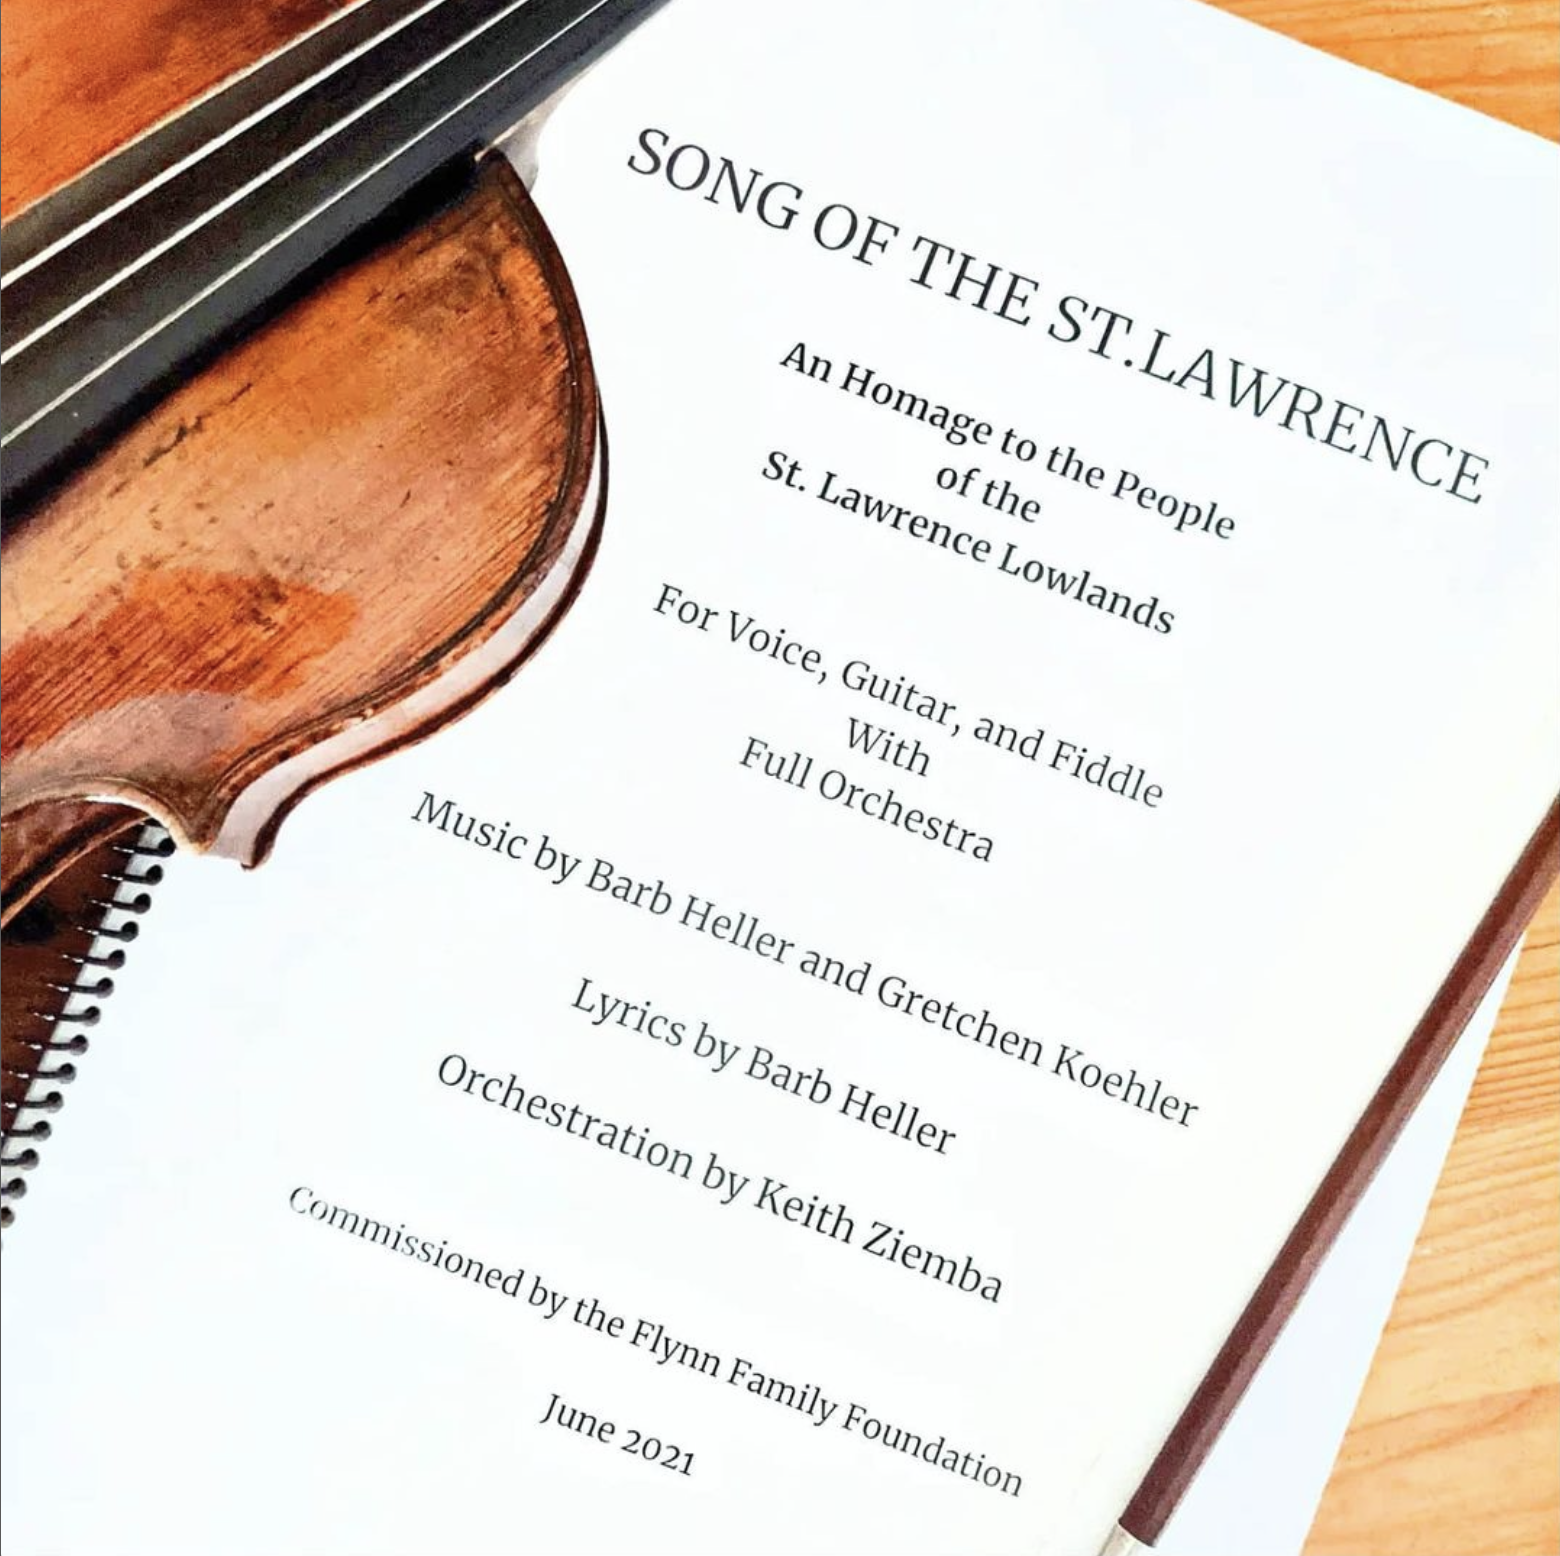 SONG OF THE ST.LAWRENCE
An Homage to the People
of the
St. Lawrence Lowlands
For Voice, Guitar, and Fiddle
With
Full Orchestra
Music by Barb Heller and Gretchen Koehler
Lyrics by Barb Heller
Orchestration by Keith Ziemba
Commissioned by the Flynn Family Foundation
June 2021